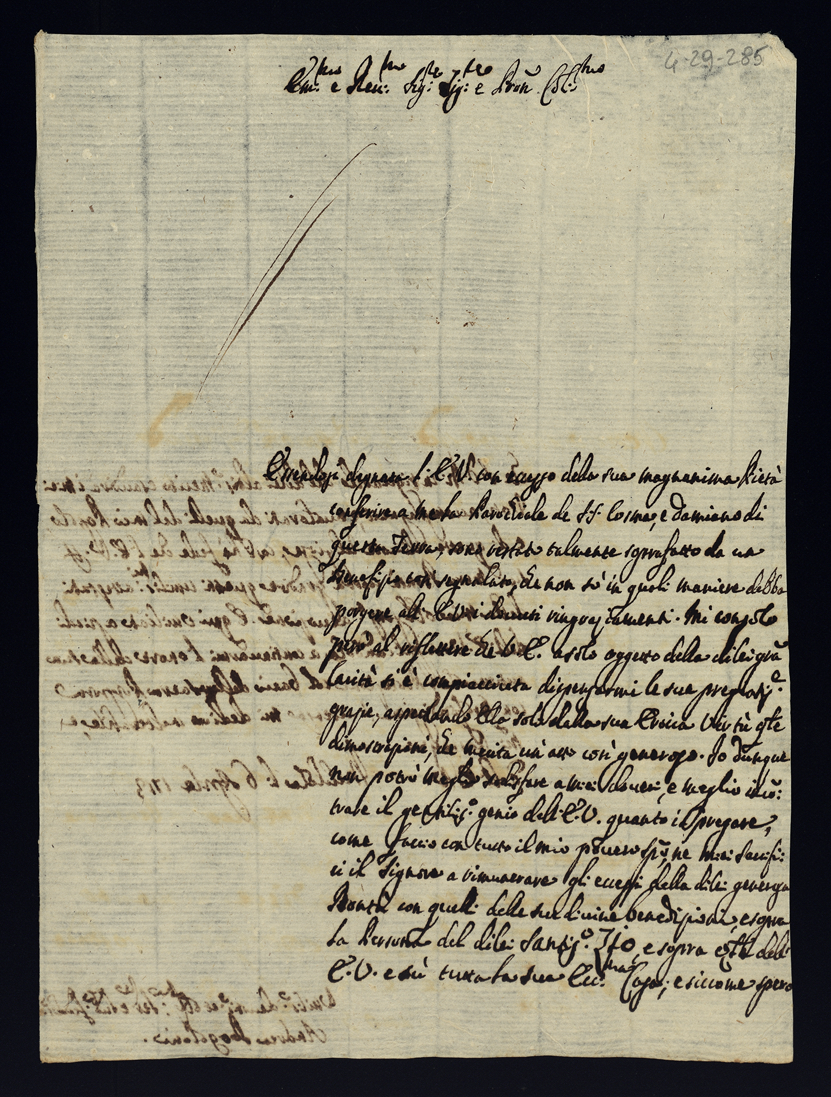 4-29-285
Em:mo e Reu:mo Sig:re Sig:re e Pron Col:mo
Essendosi degnata l'E.V. con eccesso della sua magnanima Pietà
conferire a me la Parochiale de SS: Cosma, e Damiano di
questa Terra, sono restato talmente soprafatto da un
benefizio così segnalato, che non sò in quali maniere debba
porgere all'E.V. i dovuti ringraziamenti. Mi consolo
però al riflettere che V.E. a solo oggetto della di lei gra
si è compiacciuta dispensarmi le sue pregiatis:e
grazie, aspettando Ella solo dalla sua Eroica Virtù q:lle
dimostrazioni, che merita un'atto così generoso. Io dunque
non potrò meglio sodisfare a miei doveri, e meglio incõ:
trare il gentilis:o genio dell'E.V. quanto in pregare,
come faccio con tutto il mio povero spũ, ne miei Sacrifi:
ci il Signore a rimunerare gli eccessi della di lei generosa
Bontà con quelli delle sue divine benedizioni, e sopra
la Persona del di lei Santis:o Zio, e sopra dell'
E.V. e sù tutta la sua Ecc:ma Casa; e siccome spero